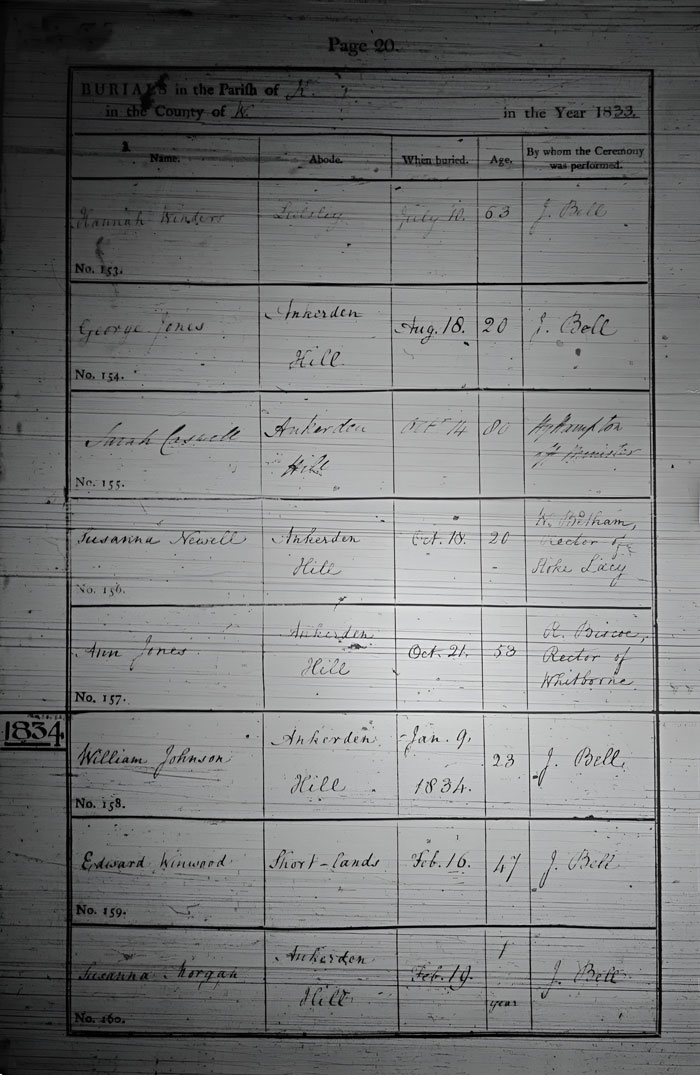 Page 20.
BURIALS in the Parish of K.
in the County of W. in the Year 1833.
Name. Abode. When buried. Age. By whom the Ceremony was performed.
Hannah Winders Lulsley July 10. 63 J. Bell
No. 153.
George Jones Ankerden Hill Aug. 18. 20 J. Bell
No. 154.
Sarah Caswell Ankerden Hill Octr 14 80
No. 155.
Susanna Newell Ankerden Hill Oct. 18. 20 Rector of Stoke Lacy
No. 156.
Ann Jones Ankerden Hill Oct. 21. 53 R. Biscoe, Rector of Whitborne
No. 157.
1834
William Johnson Ankerden Hill Jan. 9. 1834. 23 J. Bell,
No. 158.
Edward Winwood Short-lands Feb. 16. 47 J. Bell
No. 159.
Susanna Morgan Ankerden Hill Feb. 19. 1 year J. Bell
No. 160.